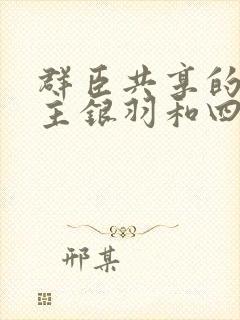 群臣共享的
主银羽和四
邢某